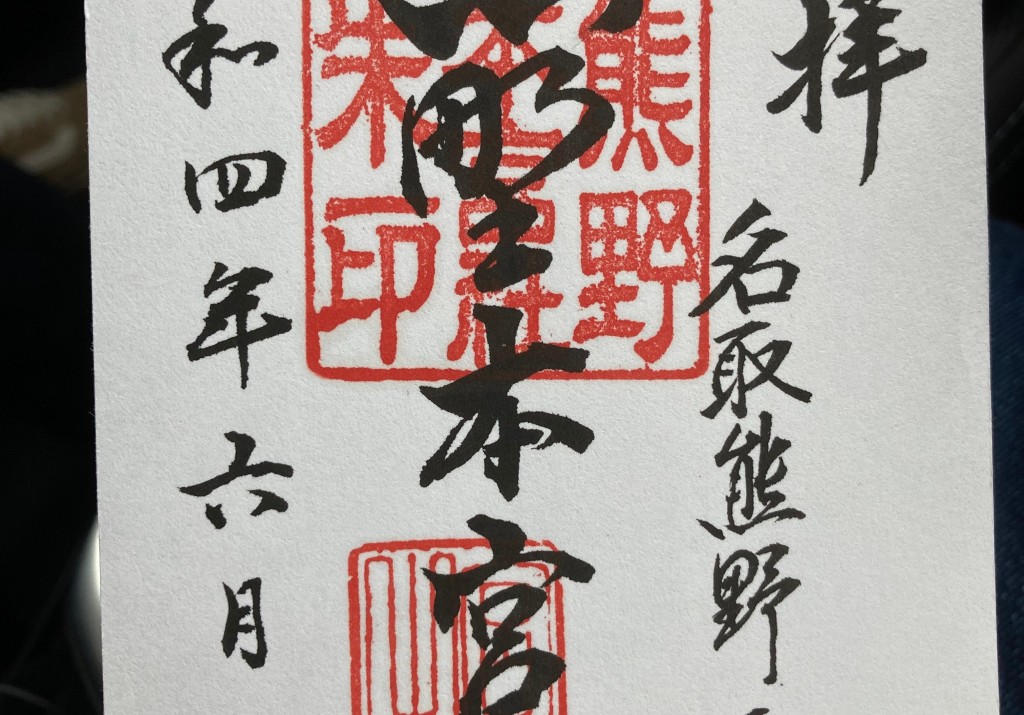 拝
名取熊野
野本宮
和四年六月
熊野
朱印